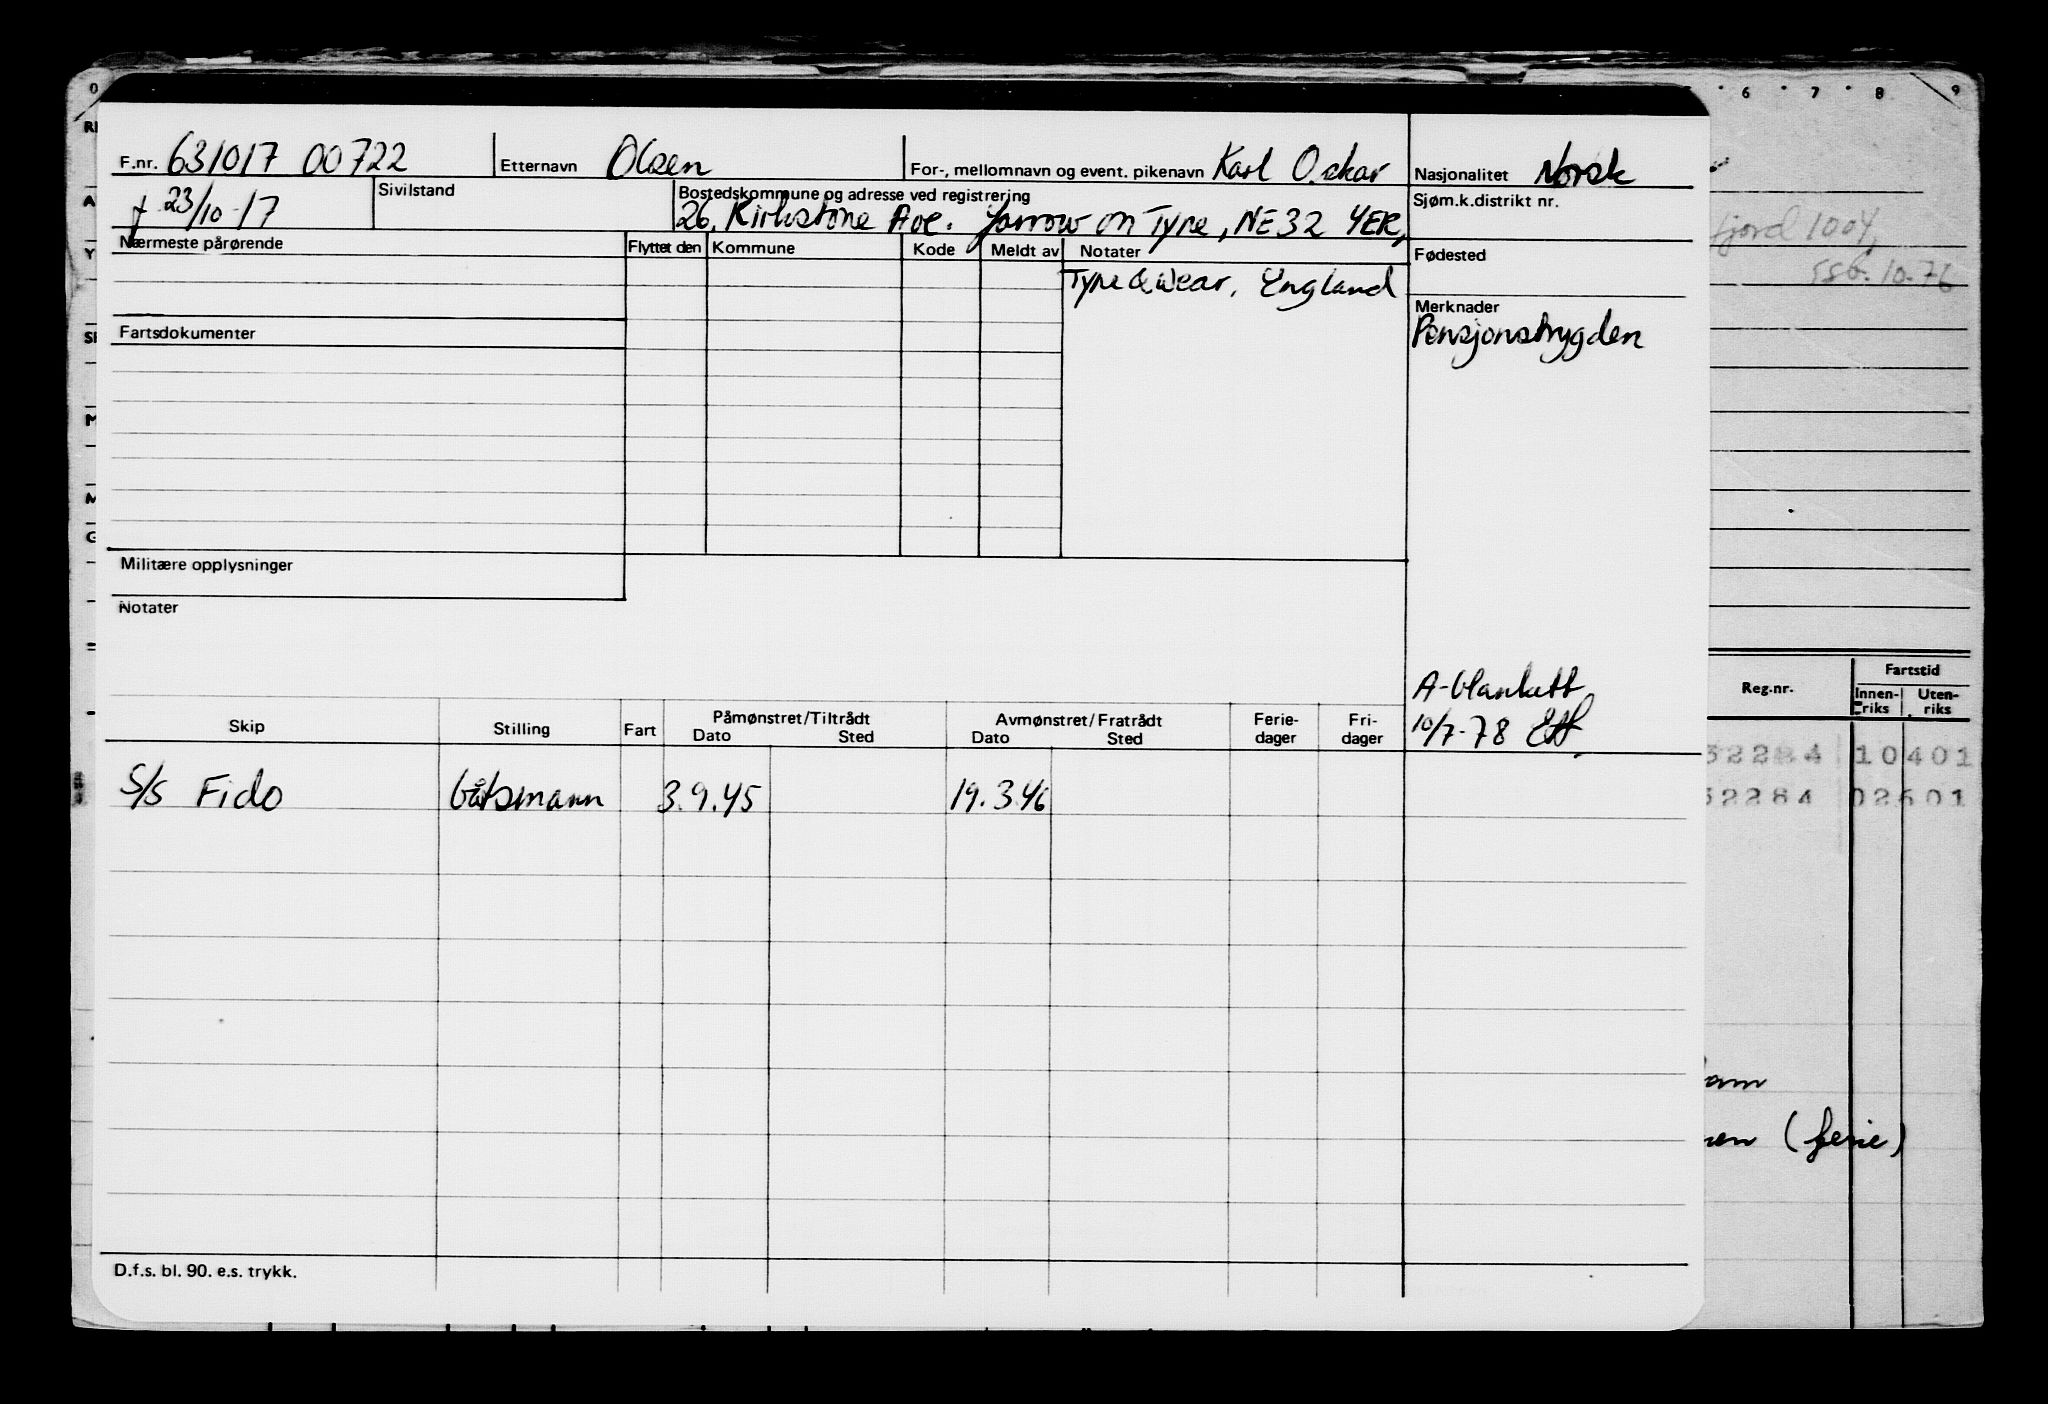 F.nr. 631017 00722 Etternavn Olsen For-, mellomnavn og event. pikenavn Karl Oskar Nasjonalitet Norsk
f 23/10-17 Sivilstand Bostedskommune og adresse ved registrering Sjøm.k.distrikt nr.
26, Kirkstone Ave. Jarrow on Tyne, NE32 YER,
Nærmeste pårørende Flyttet den Kommune Kode Meldt av Notater Fødested
Tyne & Wear, England
Merknader
Fartsdokumenter Pensjonstrygden
Militære opplysninger
Notater
A-blankett
10/7-78
Skip Stilling Fart Påmønstret/Tiltrådt Avmønstret/Fratrådt Ferie-dager Fri-dager
Dato Sted Dato Sted
S/S Fido båtsmann 3.9.45 19.3.46
D.f.s. bl. 90. e.s. trykk.
6 7 8 9
fjord 1004,
10.76
Reg.nr. Fartstid
Innen-riks Uten-riks
52284 10401
52284 02601
(ferie)